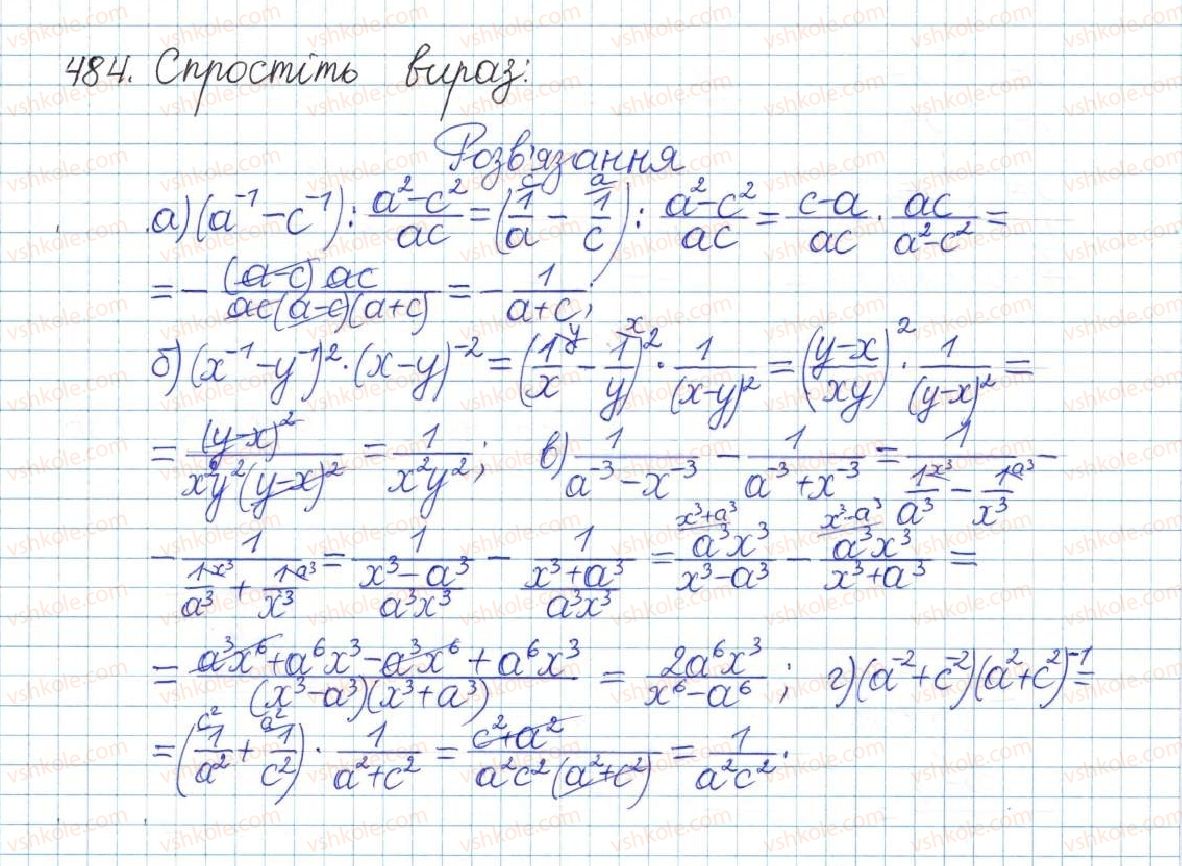 484. Спростіть вираз:
Розв'язання
а) (a⁻¹ − c⁻¹) : (a² − c²)/(ac) = (1/a − 1/c) : (a² − c²)/(ac) = (c − a)/(ac) · (ac)/(a² − c²) =
= − ((a − c) ac)/(ac(a − c)(a + c)) = − 1/(a + c);
б) (x⁻¹ − y⁻¹)² · (x − y)⁻² = (1/x − 1/y)² · 1/(x − y)² = ((y − x)/(xy))² · 1/(y − x)² =
= (y − x)²/(x²y²(y − x)²) = 1/(x²y²); в) 1/(a⁻³ − x⁻³) − 1/(a⁻³ + x⁻³) = 1/(1/a³ − 1/x³) −
− 1/(1/a³ + 1/x³) = 1/((x³ − a³)/(a³x³)) − 1/((x³ + a³)/(a³x³)) = (a³x³)/(x³ − a³) − (a³x³)/(x³ + a³) =
= (a³x⁶ + a⁶x³ − a³x⁶ + a⁶x³)/((x³ − a³)(x³ + a³)) = (2a⁶x³)/(x⁶ − a⁶); г) (a⁻² + c⁻²)(a² + c²)⁻¹ =
= (1/a² + 1/c²) · 1/(a² + c²) = (c² + a²)/(a²c²(a² + c²)) = 1/(a²c²).